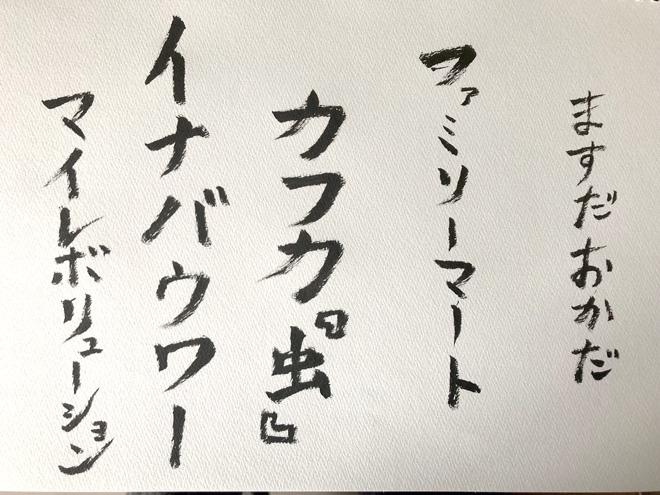 ますだおかだ
ファミリーマート
カフカ『虫』
イナバウワー
マイレボリューション